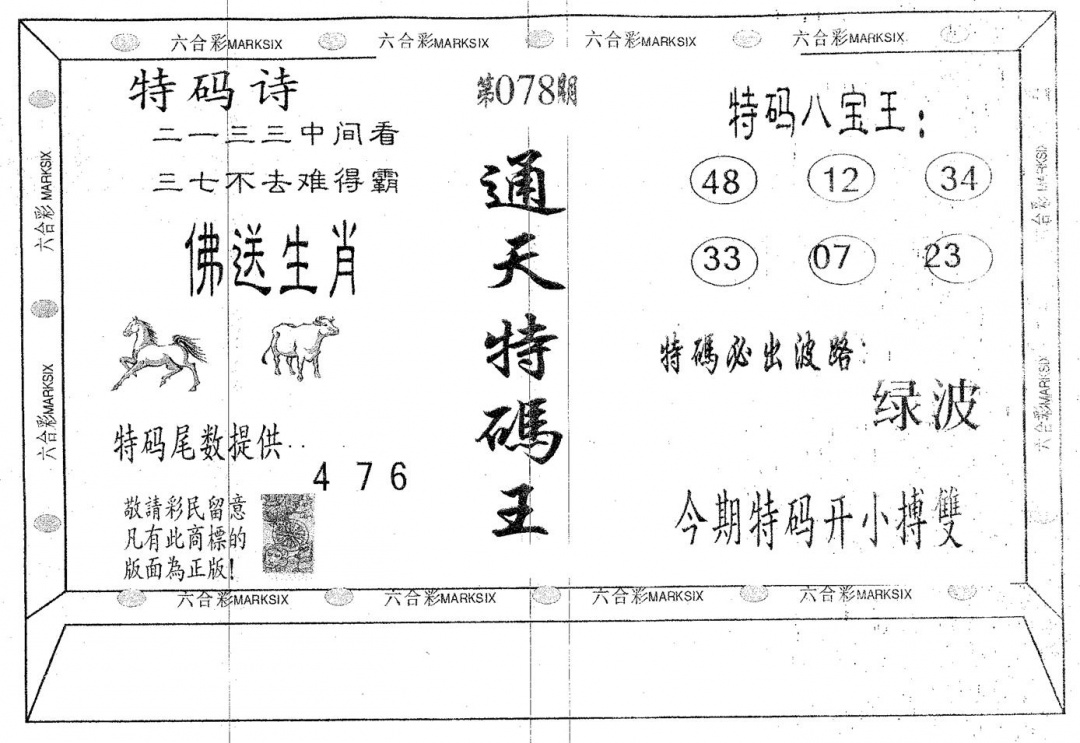 六合彩MARKSIX 六合彩MARKSIX 六合彩MARKSIX 六合彩MARKSIX
特码诗
二一三三中间看
三七不去难得霸
佛送生肖
特码尾数提供..
4 7 6
敬請彩民留意
凡有此商標的
版面為正版!
第078期
通天特碼王
特码八宝王:
48 12 34
33 07 23
特碼必出波路:
绿波
今期特码开小搏雙
六合彩MARKSIX
六合彩MARKSIX
六合彩MARKSIX
六合彩MARKSIX
六合彩MARKSIX 六合彩MARKSIX 六合彩MARKSIX 六合彩MARKSIX